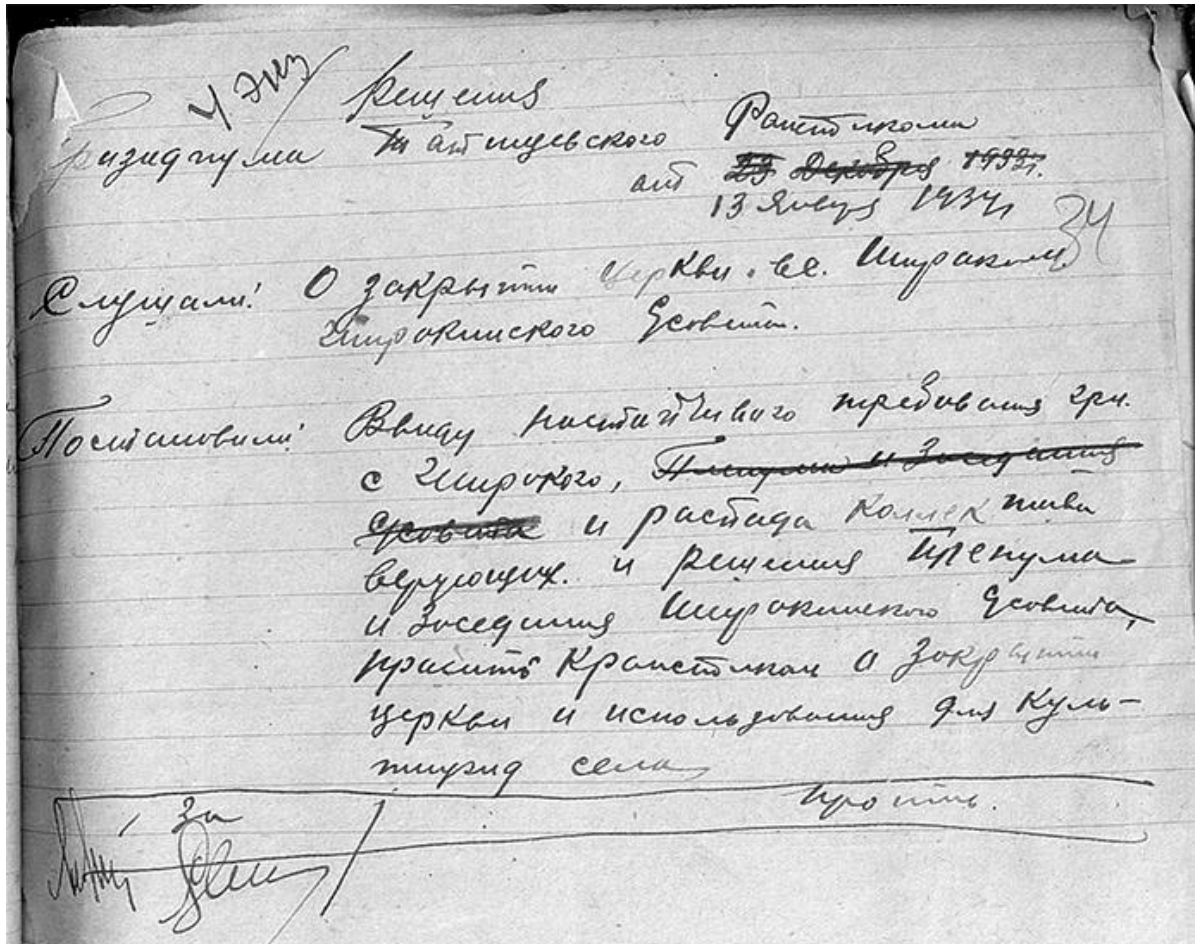 4 экз
Решения
Призидиума Татищевского Раисполкома
от 23 Декобря 1933г.
13 Января 1934г
34
Слушали: О закрытии церкви в с. Широком
Широкинского Усовета.
Постановили: Ввиду настойчиваго требования гр.
с Широкого, Пленума и Заседания
Усовета и распада коллектива
верующих. и решения Пленума
и Заседания Широкинского Усовета,
просить Краисполком о закрытии
церкви и использования для Куль-
турид села
За Против.